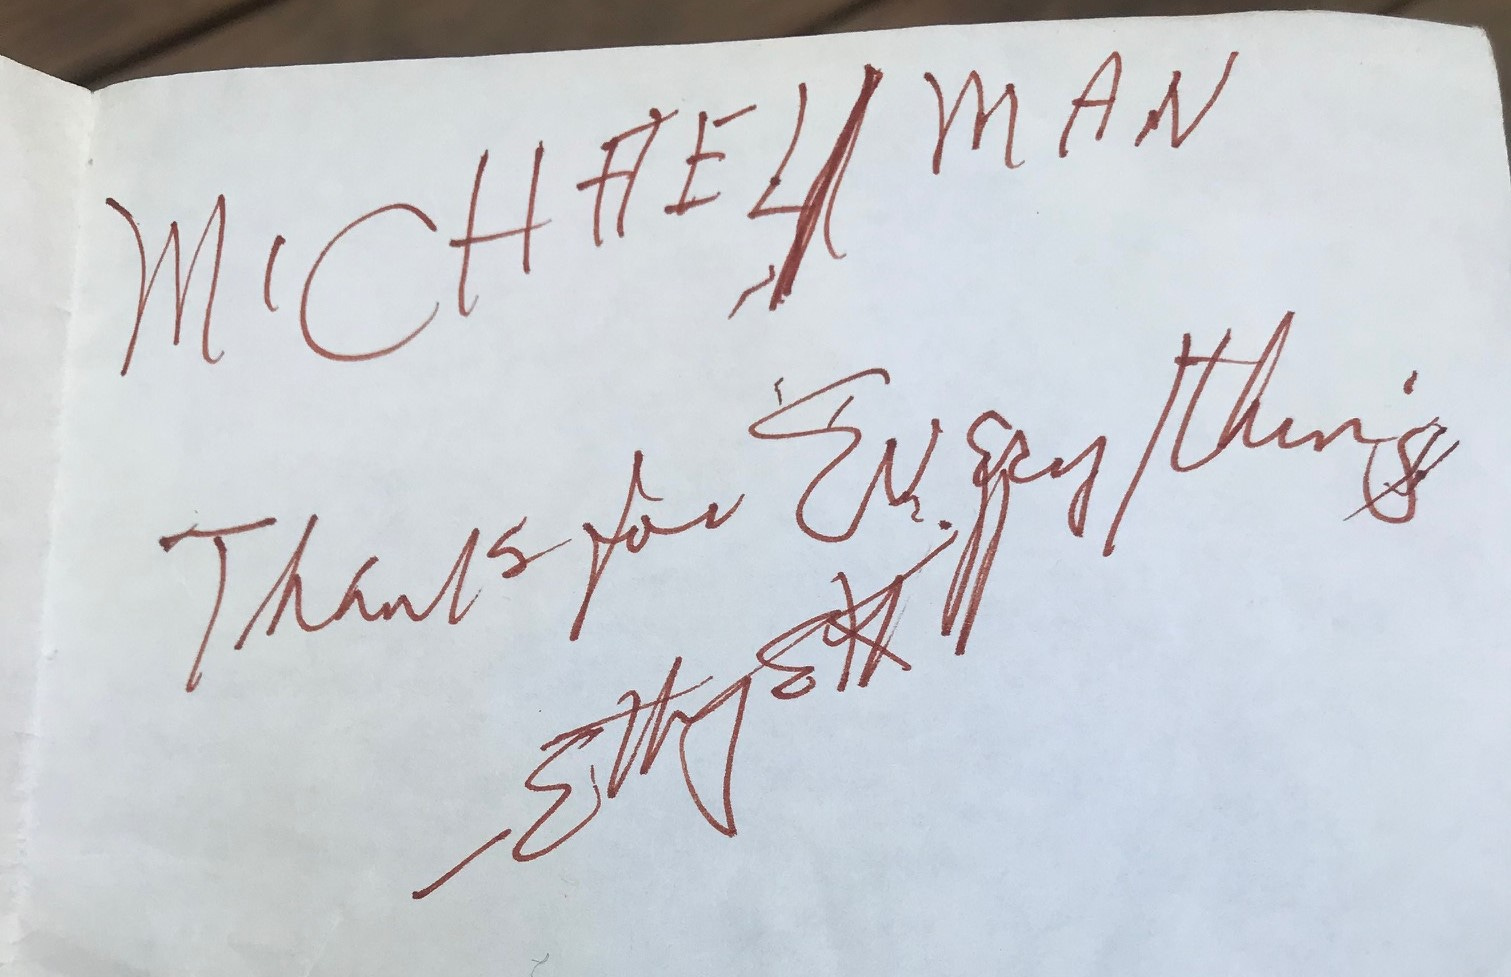 MICHAEL MAN
Thanks for Everything